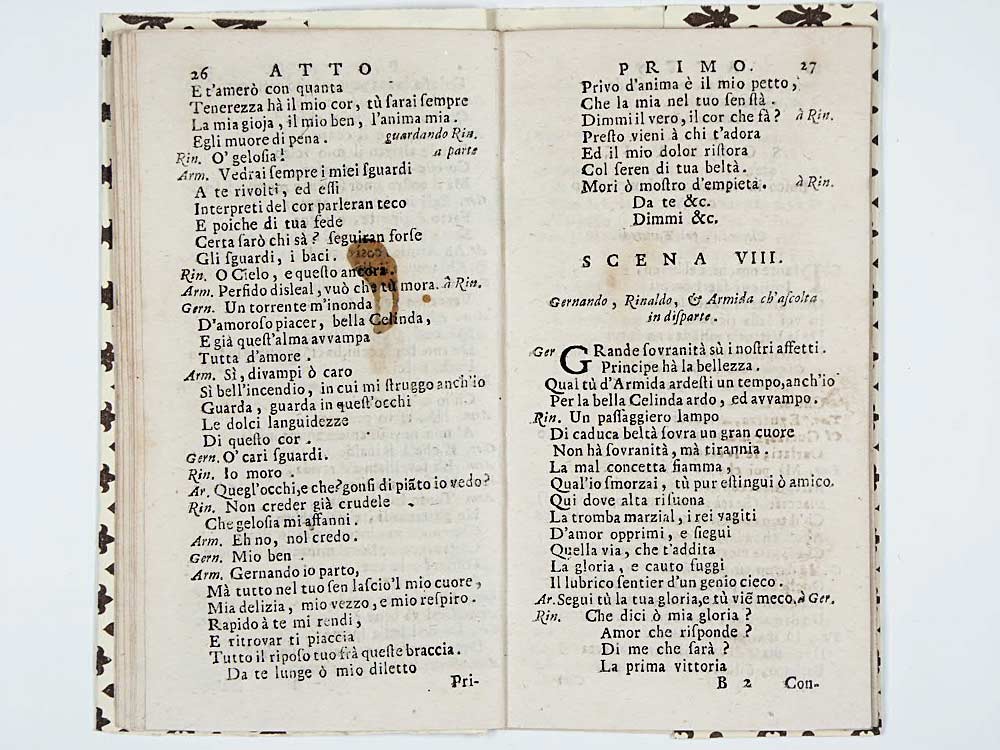 26 ATTO
E t'amerò con quanta
Tenerezza hà il mio cor, tù ſarai ſempre
La mia gioja, il mio ben, l'anima mia.
Egli muore di pena. guardando Rin.
Rin. O' geloſia! a parte
Arm. Vedrai ſempre i miei ſguardi
A te rivolti, ed eſſi
Interpreti del cor parleran teco
E poiche di tua fede
Certa ſarò chi sà? ſeguiran forſe
Gli ſguardi, i baci.
Rin. O Cielo, e queſto ancora.
Arm. Perfido disleal, vuò che tù mora. à Rin.
Gern. Un torrente m'inonda
D'amoroſo piacer, bella Celinda,
E già queſt'alma avvampa
Tutta d'amore.
Arm. Sì, divampi ò caro
Sì bell'incendio, in cui mi ſtruggo anch'io
Guarda, guarda in queſt'occhi
Le dolci languidezze
Di queſto cor.
Gern. O' cari ſguardi.
Rin. Io moro.
Ar. Quegl'occhi, e che? gonfi di piãto io vedo?
Rin. Non creder già crudele
Che geloſia mi affanni.
Arm. Eh no, nol credo.
Gern. Mio ben.
Arm. Gernando io parto,
Mà tutto nel tuo ſen laſcio'l mio cuore,
Mia delizia, mio vezzo, e mio reſpiro.
Rapido à te mi rendi,
E ritrovar ti piaccia
Tutto il ripoſo tuo frà queſte braccia.
Da te lunge ò mio diletto
Pri-
PRIMO. 27
Privo d'anima è il mio petto,
Che la mia nel tuo ſen ſtà.
Dimmi il vero, il cor che fà? à Rin.
Preſto vieni à chi t'adora
Ed il mio dolor riſtora
Col ſeren di tua beltà.
Mori ò moſtro d'empietà. à Rin.
Da te &c.
Dimmi &c.
SCENA VIII.
Gernando, Rinaldo, & Armida ch'aſcolta
in diſparte.
Ger GRande ſovranità sù i noſtri affetti.
Principe hà la bellezza.
Qual tù d'Armida ardeſti un tempo, anch'io
Per la bella Celinda ardo, ed avvampo.
Rin. Un paſſaggiero lampo
Di caduca beltà ſovra un gran cuore
Non hà ſovranità, mà tirannia.
La mal concetta fiamma,
Qual'io ſmorzai, tù pur eſtingui ò amico.
Qui dove alta riſuona
La tromba marzial, i rei vagiti
D'amor opprimi, e ſiegui
Quella via, che t'addita
La gloria, e cauto fuggi
Il lubrico ſentier d'un genio cieco.
Ar. Segui tù la tua gloria, e tù viẽ meco. à Ger.
Rin. Che dici ò mia gloria?
Amor che riſponde?
Di me che ſarà?
La prima vittoria
B 2 Con-